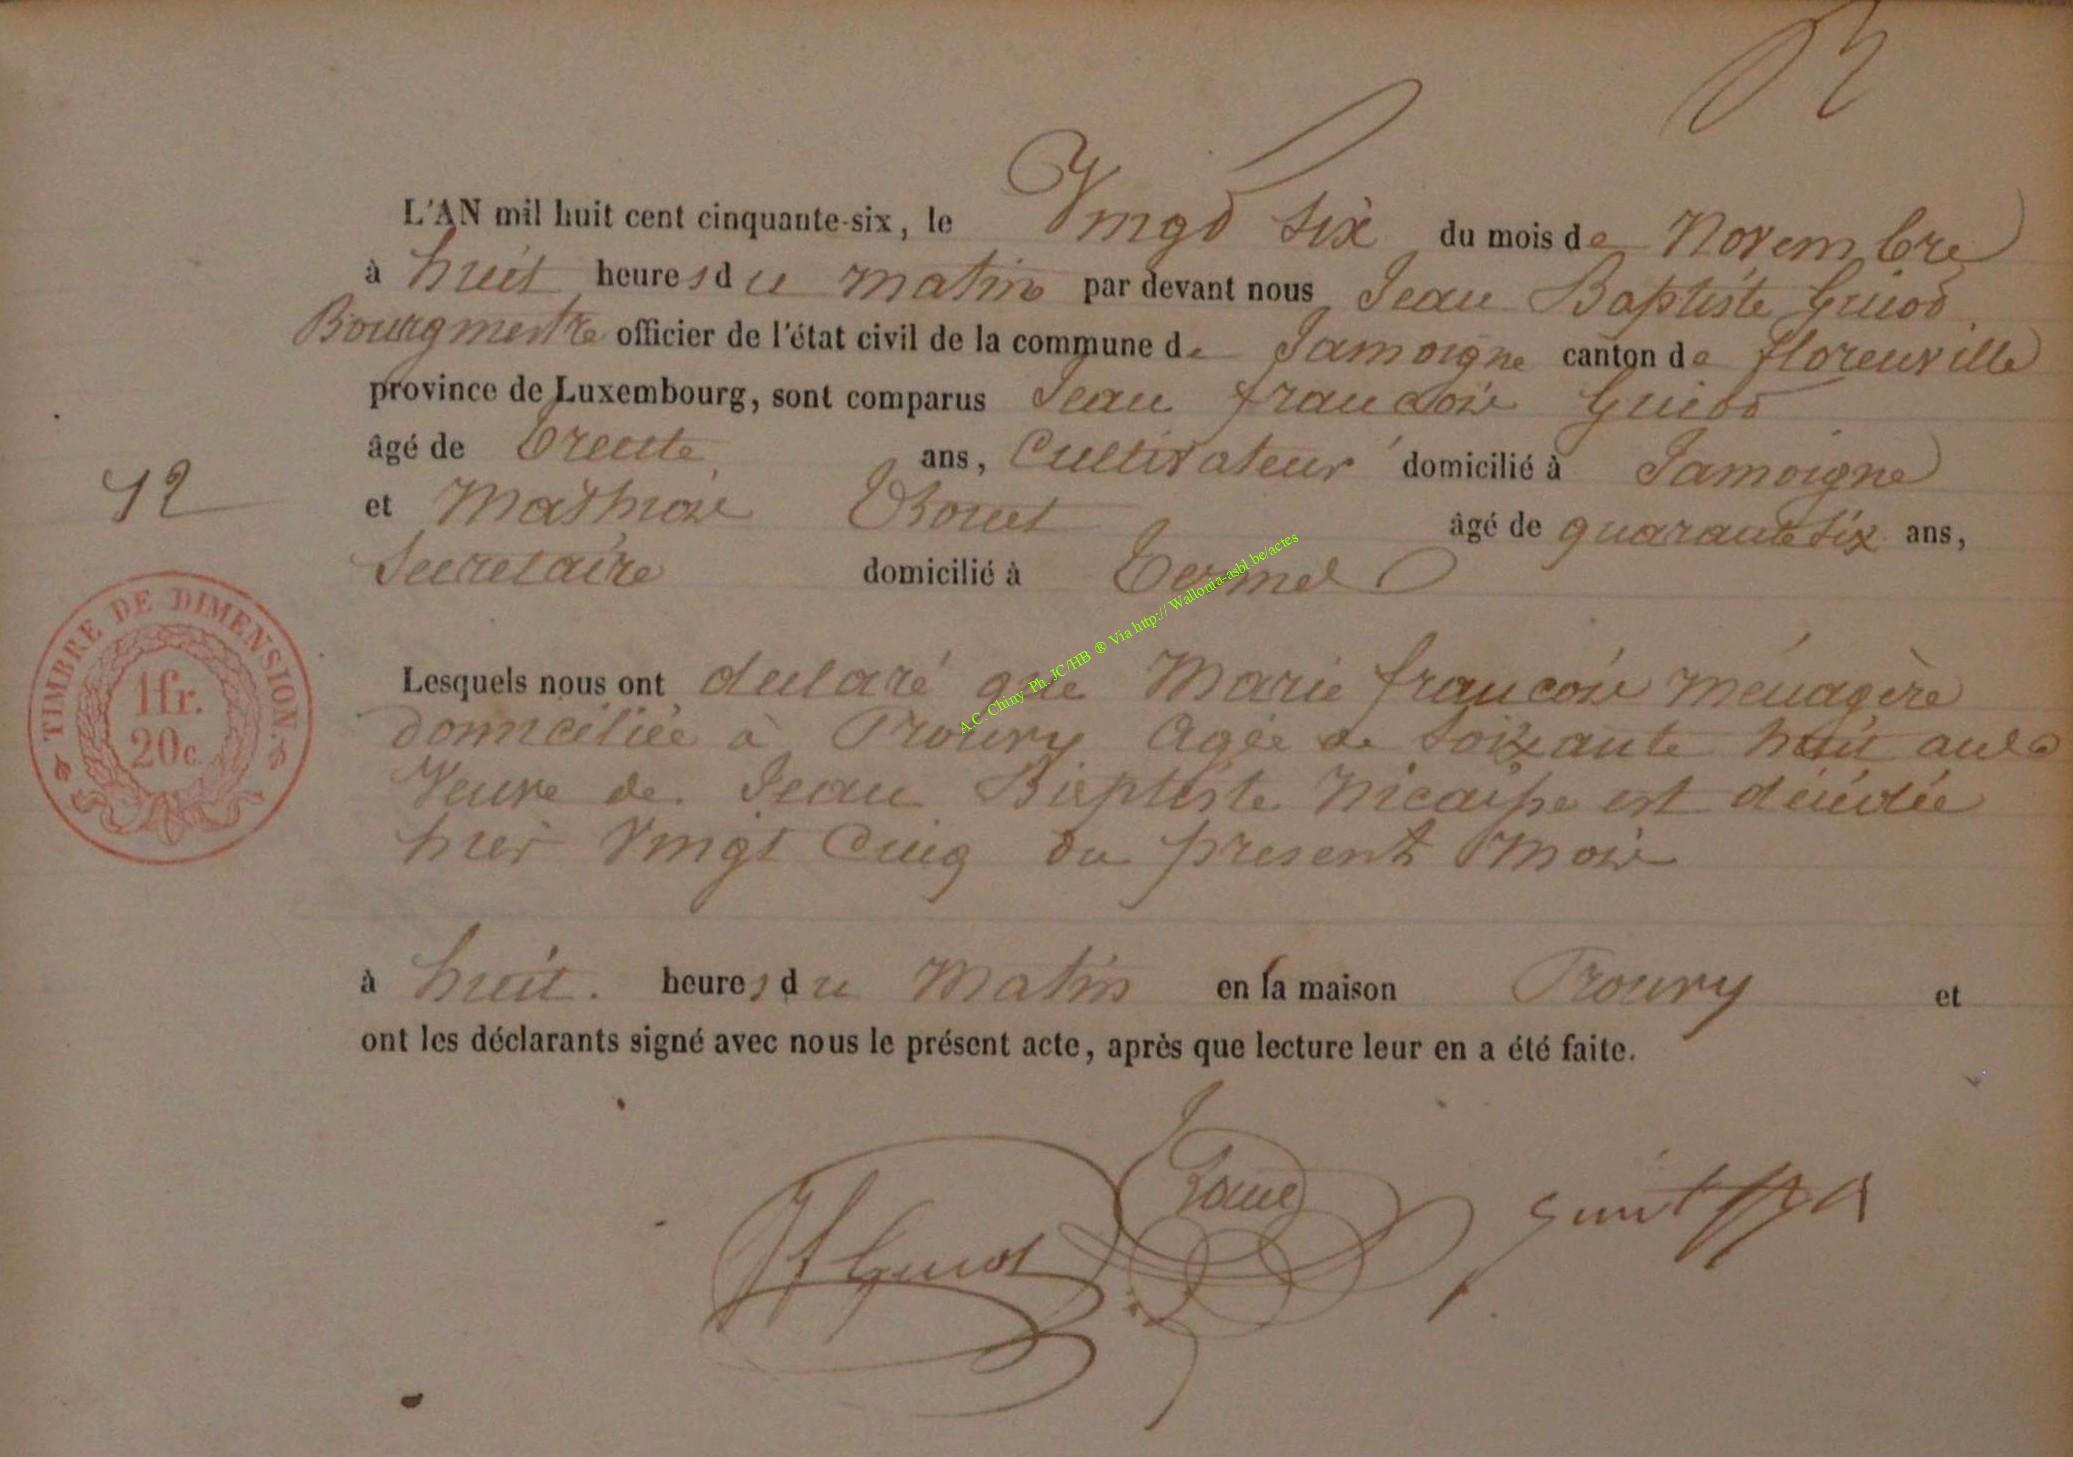 L'AN mil huit cent cinquante-six, le Vingt Six du mois de Novembre
à huit heures du matin par devant nous Jean Baptiste Guiot
Bourgmestre officier de l'état civil de la commune de Jamoigne canton de florenville
province de Luxembourg, sont comparus Jean francois Guiot
âgé de trente ans, Cultivateur domicilié à Jamoigne
et Mathias âgé de quarante Six ans,
12
Secretaire domicilié à Termel
TIMBRE DE DIMENSION.
1fr.
20c.
A.C. Chiny Ph. JC/HB ® Via http:// Wallonia-asbl.be/actes
Lesquels nous ont declaré que Marie francois ménagère
domiciliée à Prouvy Agée de Soixante huit ans
Veuve de Jean Baptiste Nicaise est décédée
hier Vingt Cinq du present Mois
à huit heures du Matin en sa maison Prouvy et
ont les déclarants signé avec nous le présent acte, après que lecture leur en a été faite.
Jf Guiot